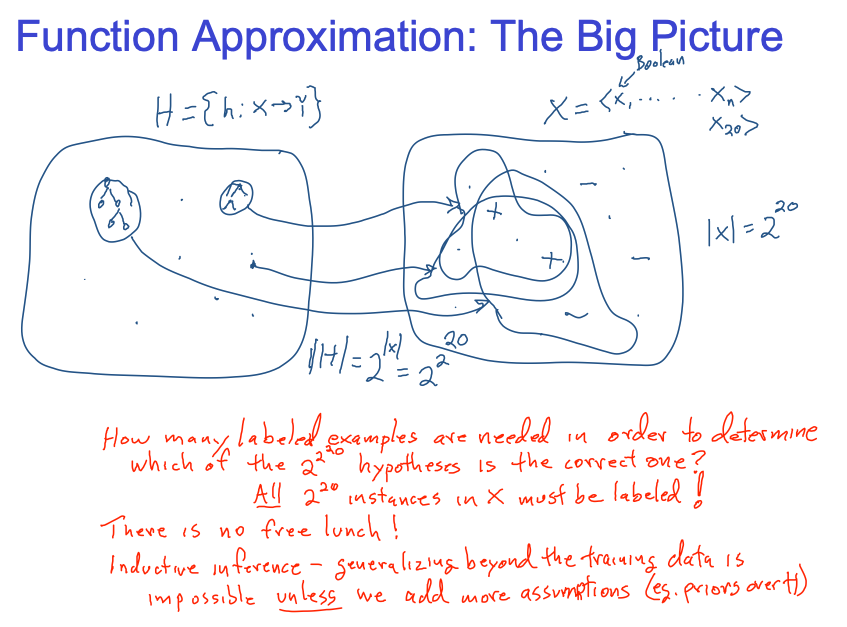 Function Approximation: The Big Picture
Boolean
H = {h: X → Y}
X = <x₁, ... · xₙ>
x₂₀>
|X| = 2²⁰
|H| = 2^|X| = 2^2^20
+
+
−
−
~
How many labeled examples are needed in order to determine
which of the 2^2^20 hypotheses is the correct one?
All 2²⁰ instances in X must be labeled!
There is no free lunch!
Inductive inference – generalizing beyond the training data is
impossible unless we add more assumptions (eg. priors over H)